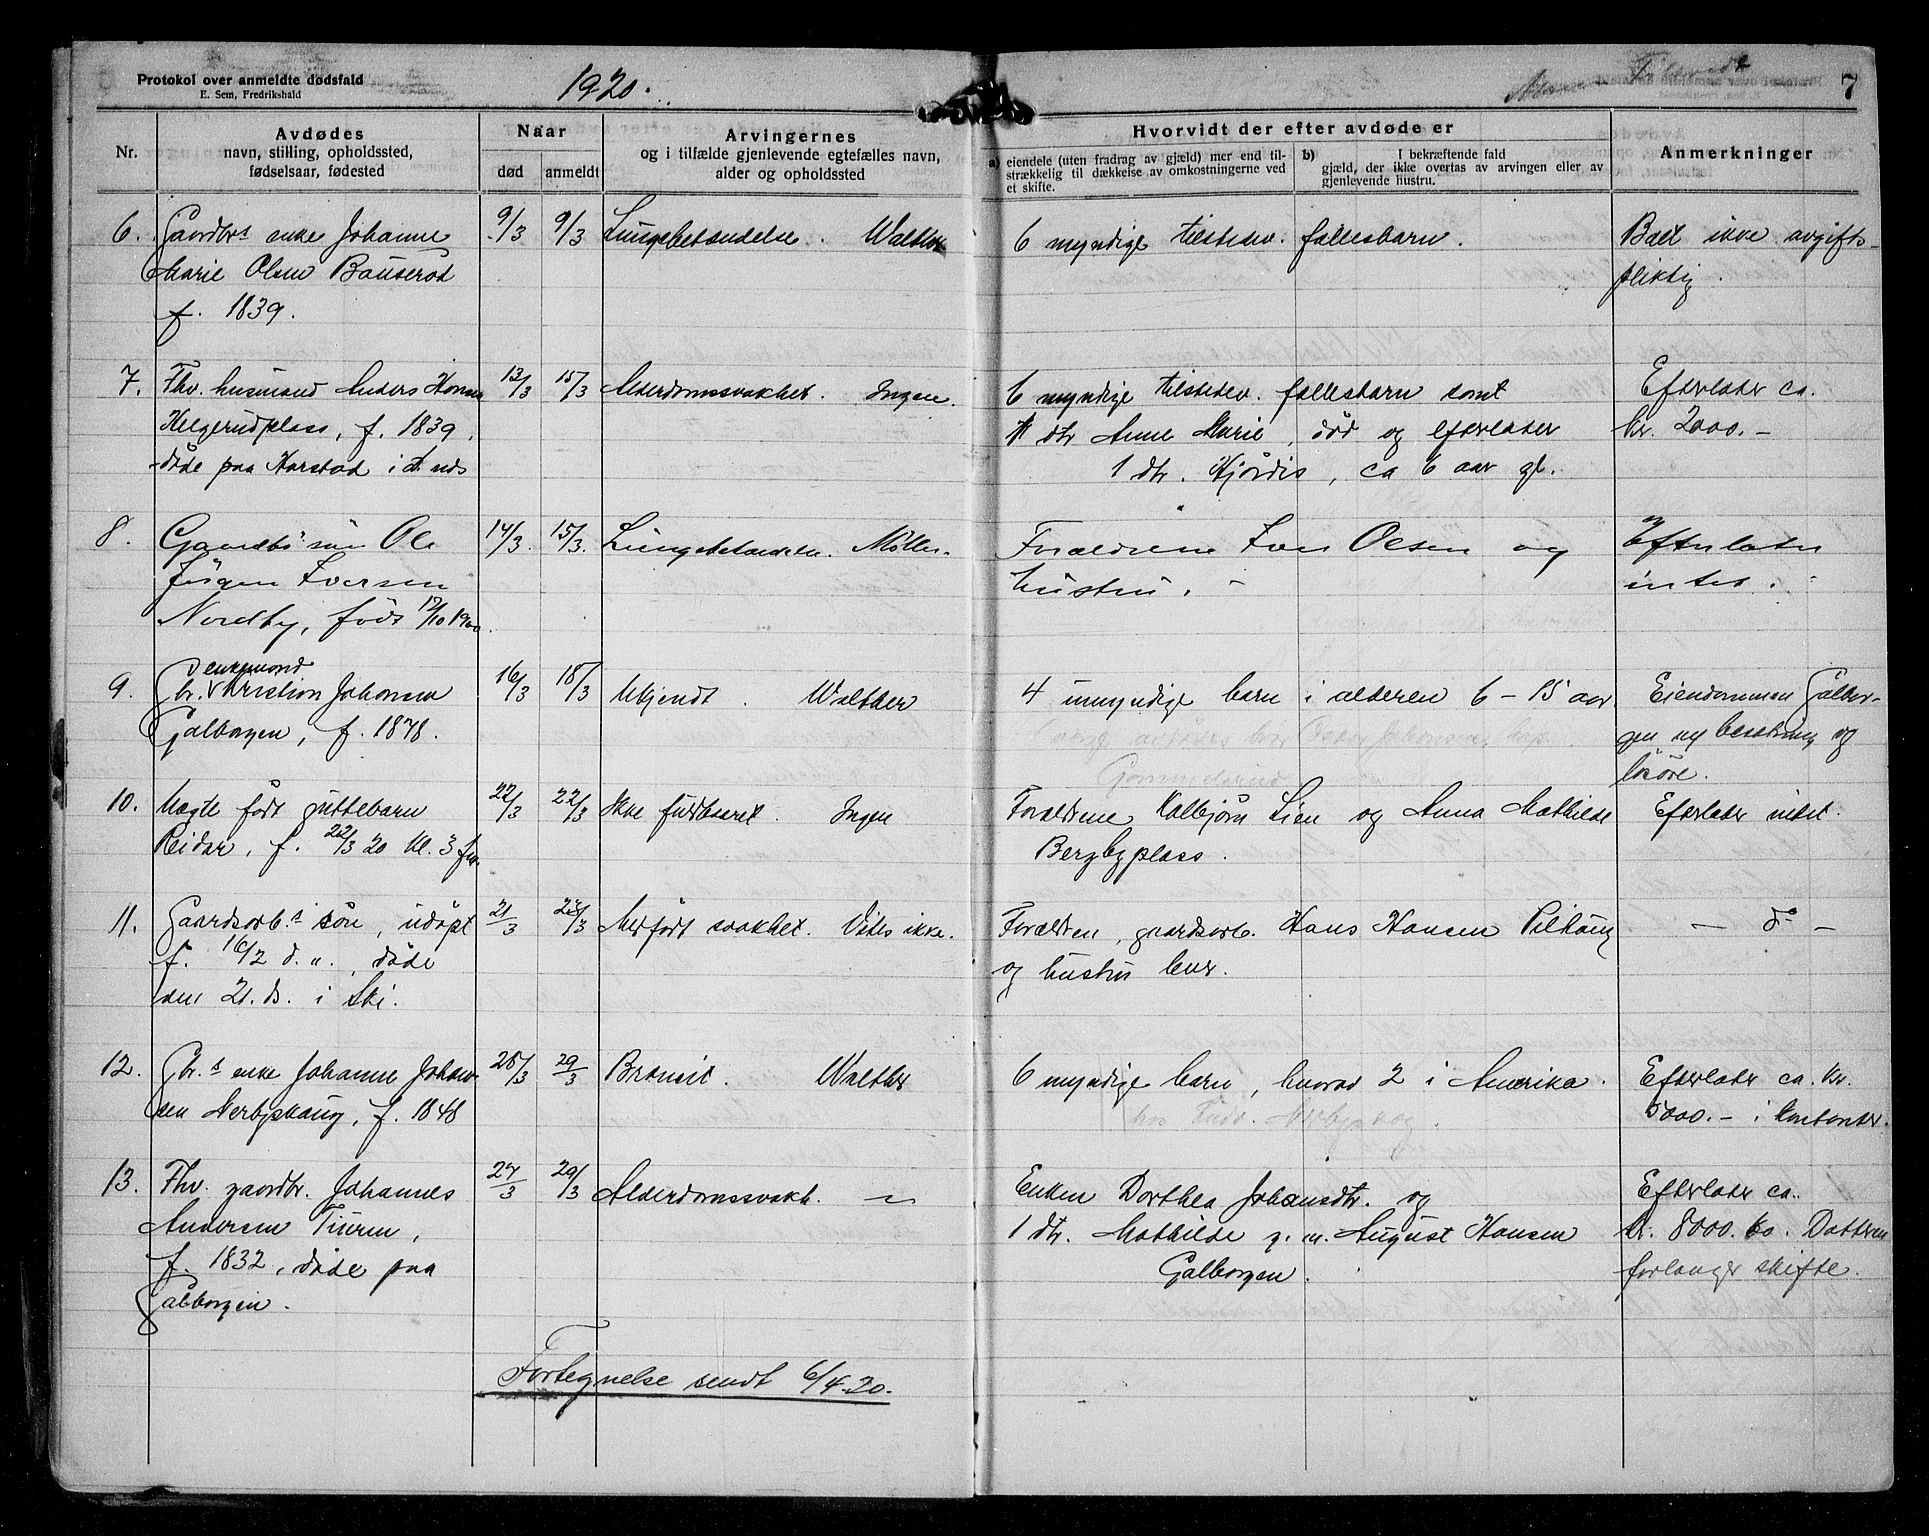 Protokol over anmeldte dødsfald
E. Sem, Fredrikshald
1920.
7
Nr.
Avdødes
navn, stilling, opholdssted,
fødselsaar, fødested
Naar
død
anmeldt
Arvingernes
og i tilfælde gjenlevende egtefælles navn,
alder og opholdssted
Hvorvidt der efter avdøde er
a) eiendele (uten fradrag av gjæld) mer end til-
strækkelig til dækkelse av omkostningerne ved
et skifte.
b) I bekræftende fald
gjæld, der ikke overtas av arvingen eller av
gjenlevende hustru.
Anmerkninger
6. Gaardbrs enke Johanne 9/3 9/3 Lungebetændelse. Walther 6 myndige tilstedev. fællesbarn. Boet ikke avgifts-
Marie Olsen Bauserød pliktig.
f. 1839.
7. Fhv. husmand Anders Hansen 13/3 15/3 Alderdomssvakhet. Ingen. 6 myndige tilstedev. fællesbarn samt Efterlater ca.
Helgerudplass, f. 1839, 1 dtr Anne Marie, død og efterlater kr. 2000.-
døde paa Harstad i d. nds 1 dtr. Hjørdis, ca 6 aar gl.
8. Gaardbr søn Ole 14/3. 15/3. Lungebetændelse. Møller. Forældrene Iver Olsen og Efterlater
Jørgen Iversen hustru. intet.
Nordby, født 17/10 1900.
enkemand
9. Gbr. Kristian Johansen 16/3 18/3 Ukjendt. Walther 4 umyndige barn i alderen 6 - 15 aar Eiendommen Galbor-
Galborgen, f. 1878. gen m besetning og
løsøre.
10. Uegte født guttebarn 22/3 22/3 Ikke fuldbaaret. Ingen Forældrene Kolbjørn Lien og Anna Mathilde Efterlater intet.
Reidar, f. 22/3 20 kl. 3 fm. Bergbyplass.
11. Gaardsarb.s søn, udøpt 21/3 23/3 Medfødt svakhet. Vites ikke. Forældren, gaardsarb. Hans Hansen Pilhaug — do —
f. 16/2 d. a., døde og hustru lever.
den 21. ds. i Ski.
12. Gbr.s enke Johanne Johan- 28/3 29/3 Bronkit. Walther 6 myndige barn, hvorav 2 i Amerika. Efterlater ca. kr.
sen Nerbyskaug, f. 1848 5000.- i kontanter.
13. Fhv. gaardbr. Johannes 27/3 29/3 Alderdomssvakh. — " — Enken Dorthea Johansdtr. og Efterlater ca.
Andersen Tiuren, 1 dtr. Mathilde g. m. August Hansen kr. 8000. Datteren
f. 1832, døde paa Galborgen. forlanger skifte.
Galborgen.
Fortegnelse sendt 6/4-20.